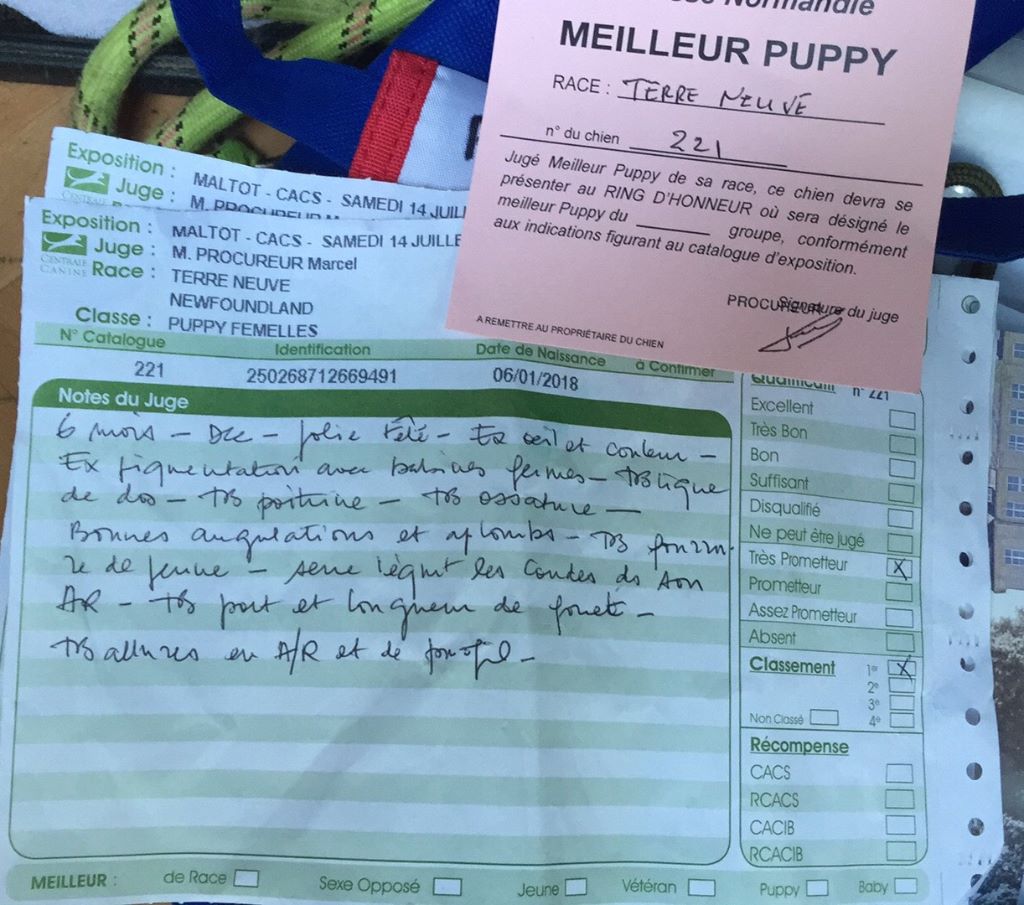 Normandie
MEILLEUR PUPPY
RACE : TERRE NEUVE
n° du chien 221
Jugé Meilleur Puppy de sa race, ce chien devra se
présenter au RING D'HONNEUR où sera désigné le
meilleur Puppy du ______ groupe, conformément
aux indications figurant au catalogue d'exposition.
PROCUREUR
Signature du juge
A REMETTRE AU PROPRIÉTAIRE DU CHIEN
Exposition : MALTOT - CACS - SAMEDI 14 JUIL
Juge : M. PROCUREUR M
Exposition : MALTOT - CACS - SAMEDI 14 JUILLE
Juge : M. PROCUREUR Marcel
CENTRALE
CANINE
Race : TERRE NEUVE
NEWFOUNDLAND
Classe : PUPPY FEMELLES
N° Catalogue Identification Date de Naissance à Confirmer
221 250268712669491 06/01/2018
Notes du Juge
6 mois - Dcc - jolie tête - Ex oeil et couleur -
Ex pigmentation avec babines fermes - TB ligne
de dos - TB poitrine - TB ossature -
Bonnes angulations et aplombs - TB fourru-
re de jeune - serre légmt les coudes ds son
AR - TB port et longueur de fouet -
TB allures en A/R et de profil -
Qualificatif n° 221
Excellent
Très Bon
Bon
Suffisant
Disqualifié
Ne peut être jugé
Très Prometteur X
Prometteur
Assez Prometteur
Absent
Classement 1er X
2e
3e
Non Classé 4e
Récompense
CACS
RCACS
CACIB
RCACIB
MEILLEUR : de Race Sexe Opposé Jeune Vétéran Puppy Baby